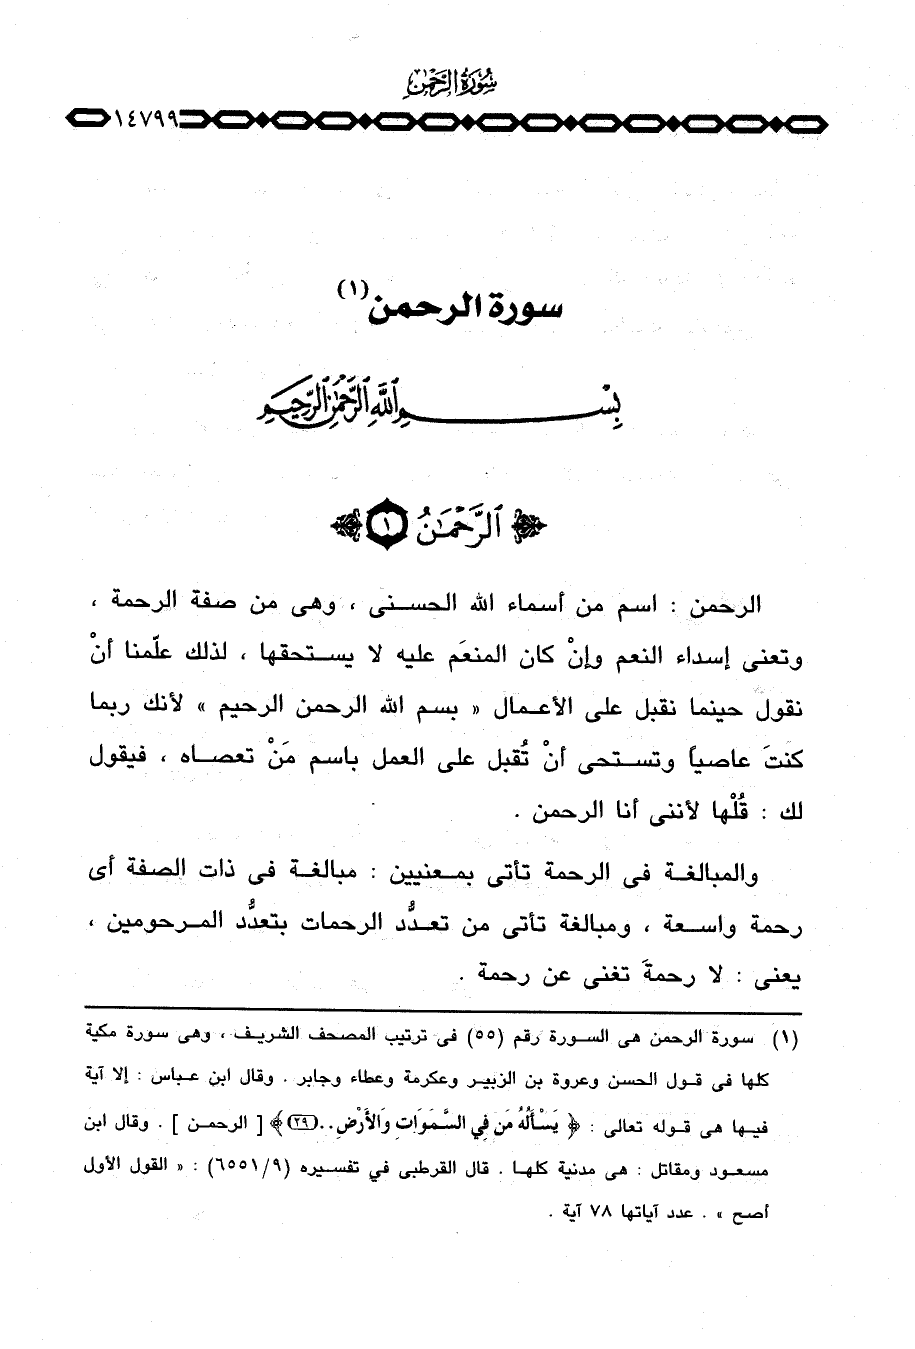 سُورَةُ الرَّحْمَنِ
١٤٧٩٩
سورة الرحمن (١)
بِسْمِ اللَّهِ الرَّحْمَٰنِ الرَّحِيمِ
ٱلرَّحْمَٰنُ ١
الرحمن : اسم من أسماء الله الحسنى ، وهى من صفة الرحمة ،
وتعنى إسداء النعم وإنْ كان المنعَم عليه لا يستحقها ، لذلك علّمنا أنْ
نقول حينما نقبل على الأعمال « بسم الله الرحمن الرحيم » لأنك ربما
كنتَ عاصياً وتستحى أنْ تُقبل على العمل باسم مَنْ تعصاه ، فيقول
لك : قُلْها لأننى أنا الرحمن .
والمبالغة فى الرحمة تأتى بمعنيين : مبالغة فى ذات الصفة أى
رحمة واسعة ، ومبالغة تأتى من تعدُّد الرحمات بتعدُّد المرحومين ،
يعنى : لا رحمةَ تغنى عن رحمة .
(١) سورة الرحمن هى السورة رقم (٥٥) فى ترتيب المصحف الشريف ، وهى سورة مكية
كلها فى قول الحسن وعروة بن الزبير وعكرمة وعطاء وجابر . وقال ابن عباس : إلا آية
فيها هى قوله تعالى : ﴿ يَسْأَلُهُ مَن فِي السَّمَوَاتِ وَالْأَرْضِ .. (٢٩) ﴾ [ الرحمن ] . وقال ابن
مسعود ومقاتل : هى مدنية كلها . قال القرطبى في تفسيره (٦٥٥١/٩) : « القول الأول
أصح » . عدد آياتها ٧٨ آية .